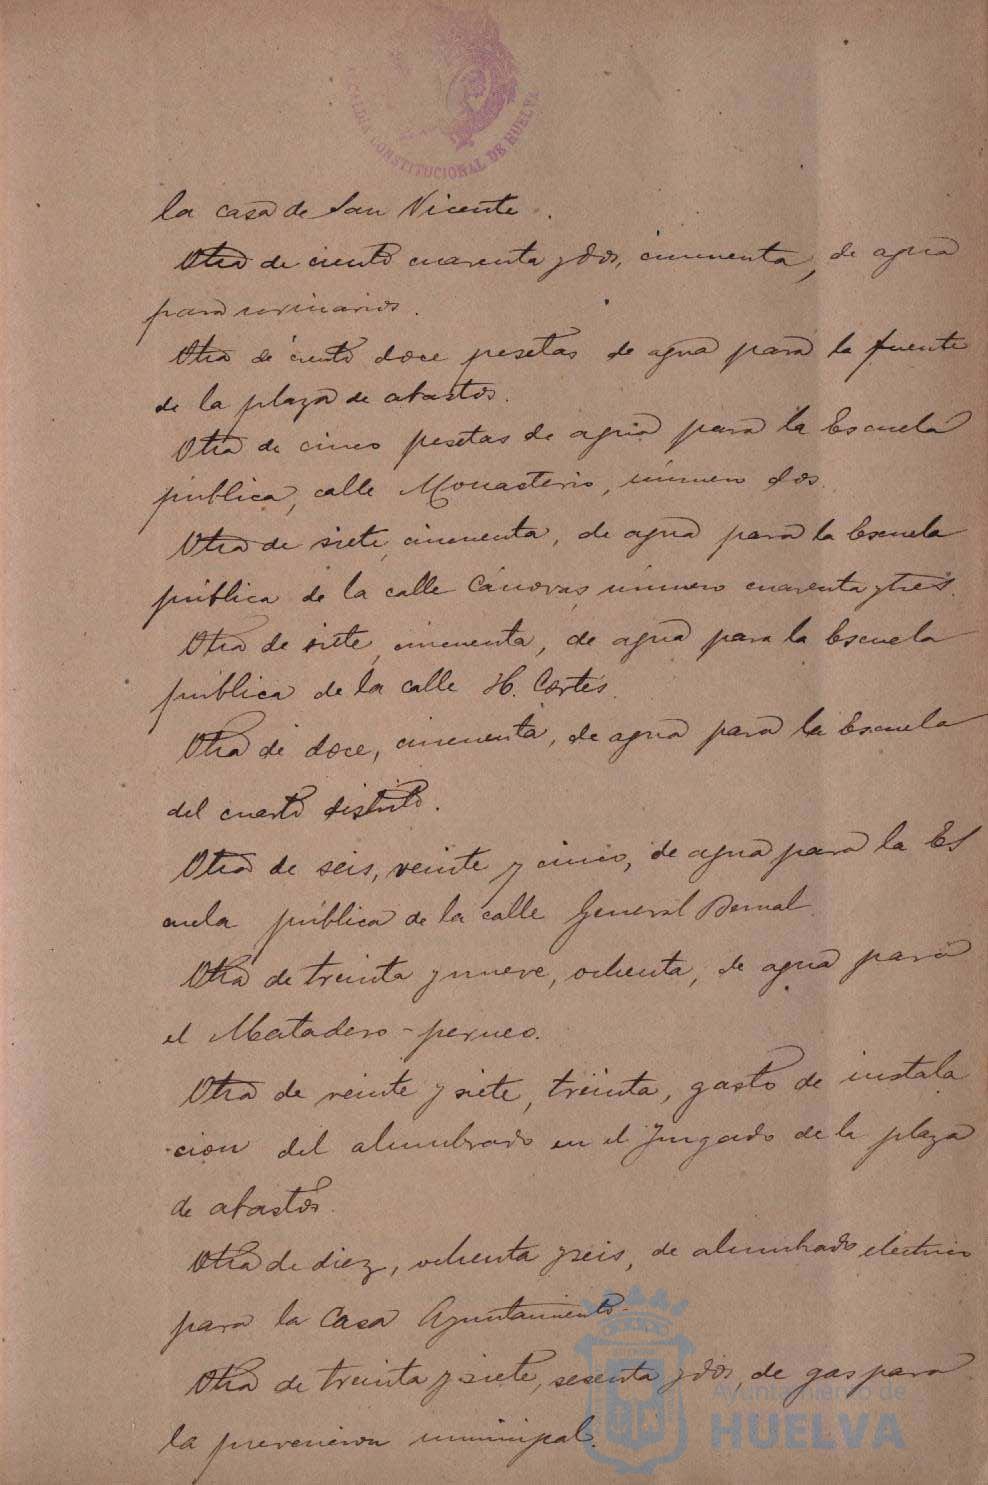 ALCALDIA CONSTITUCIONAL DE HUELVA
la casa de San Vicente.
Otra de ciento cuarenta y dos, cincuenta, de agua
para urinarios.
Otra de ciento doce pesetas de agua para la fuente
de la plaza de abastos.
Otra de cinco pesetas de agua para la Escuela
pública, calle Monasterio, número dos.
Otra de siete, cincuenta, de agua para la Escuela
pública de la calle Cánovas, número cuarenta y tres.
Otra de siete, cincuenta, de agua para la Escuela
pública de la calle H. Cortés.
Otra de doce, cincuenta, de agua para la Escuela
del cuarto distrito.
Otra de seis, veinte y cinco, de agua para la Es
cuela pública de la calle General Bernal.
Otra de treinta y nueve, ochenta, de agua para
el Matadero-perneo.
Otra de veinte y siete, treinta, gasto de instala
cion del alumbrado en el Juzgado de la plaza
de abastos.
Otra de diez, ochenta y seis, de alumbrado eléctrico
para la Casa Ayuntamiento.
Otra de treinta y siete, sesenta y dos de gas para
la prevencion municipal.
Ayuntamiento de
HUELVA